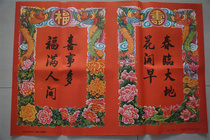 壽
福
春临大地
花開早
福满人间
喜事多